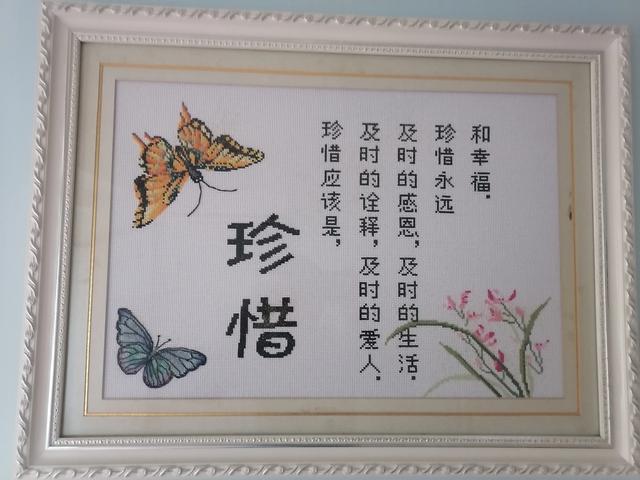 珍惜
珍惜应该是,
及时的诠释,及时的爱人.
及时的感恩,及时的生活.
珍惜永远
和幸福.